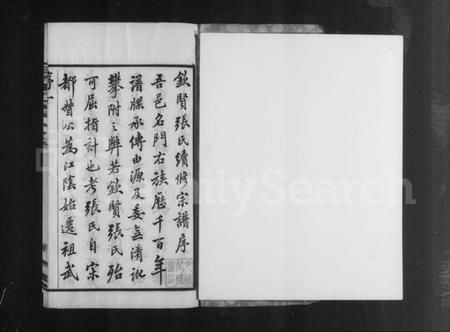 欽賢張氏續修宗譜序
吾邑名門右族歷千百年
譜牒承傳由源及委無淆訛
攀附之弊若欽賢張氏殆
可屈指計也考張氏自宋
都督公為江陰始遷祖武
序一
FamilySearch